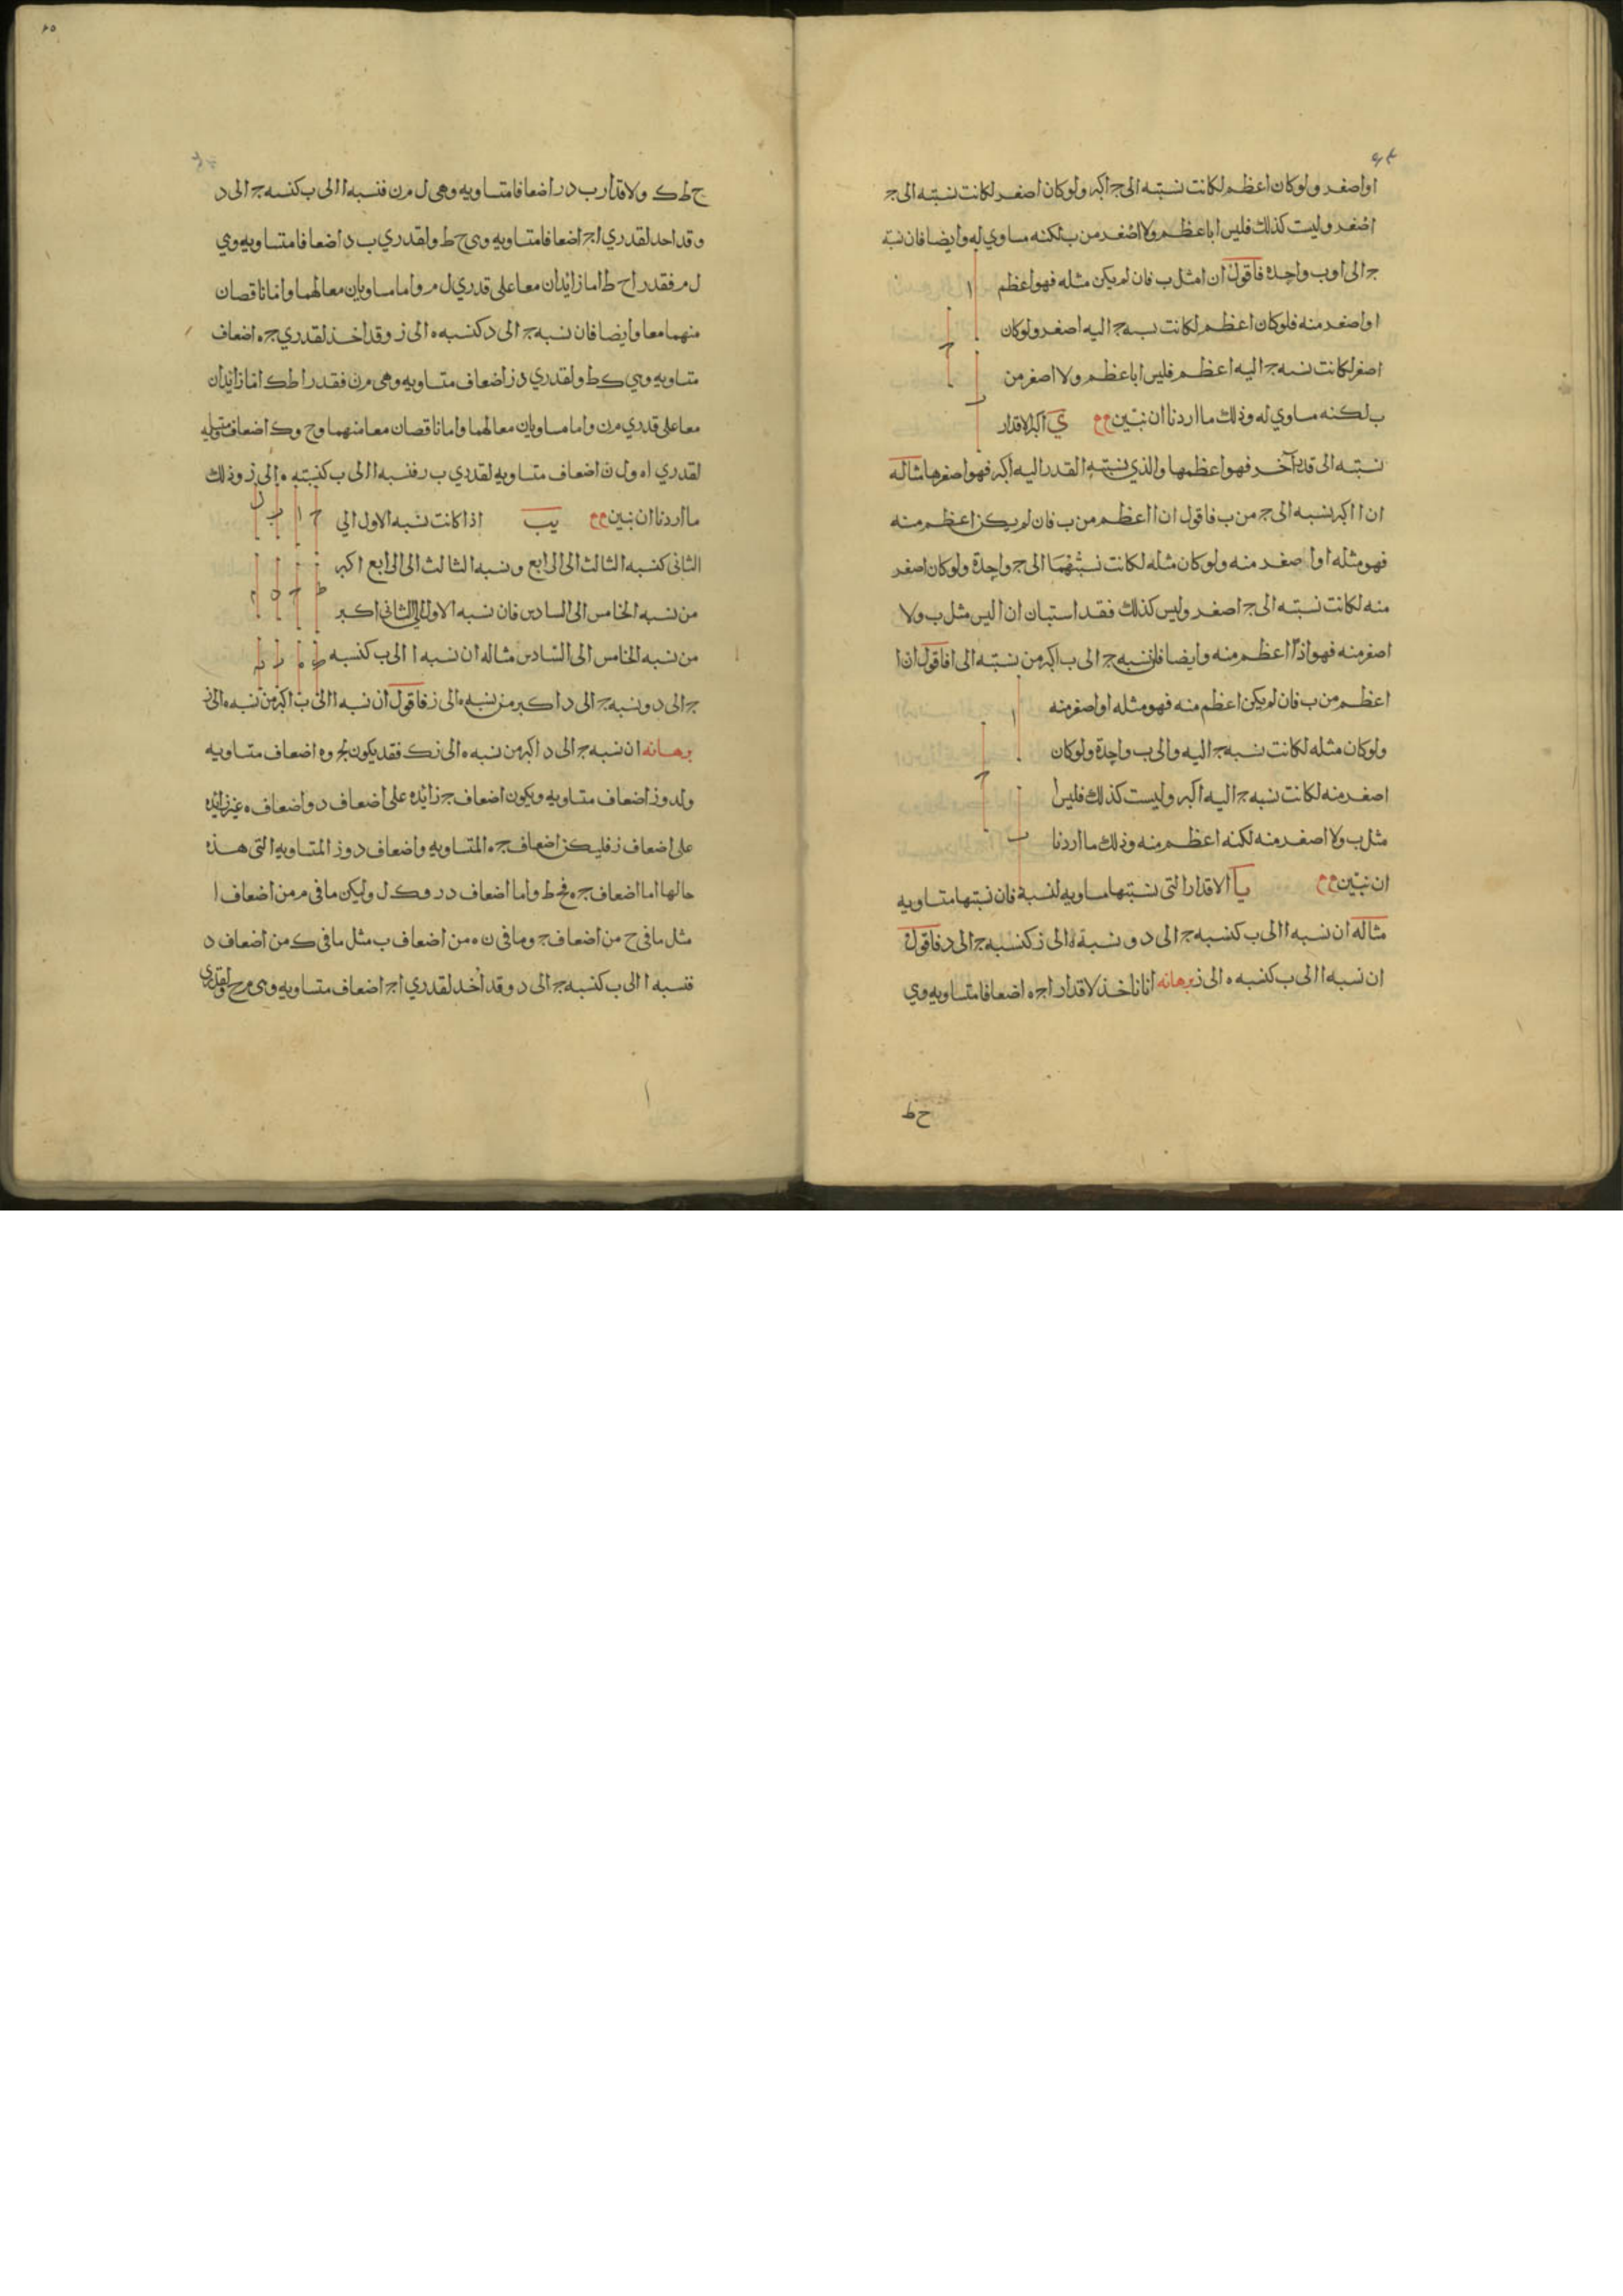 او اصغر ولو كان اعظم لكانت نسبته الى ج اكبر ولو كان اصغر لكانت نسبته الى ج
اصغر وليست كذلك فليس ا باعظم ولا اصغر من ب لكنه مساوي له وايضا فان نسبة
ج الى ا وب واحدة فاقول ان ا مثل ب فان لم يكن مثله فهو اعظم
او اصغر منه فلو كان اعظم لكانت نسبه ج اليه اصغر ولو كان
اصغر لكانت نسبه ج اليه اعظم فليس ا باعظم ولا اصغر من
ب لكنه مساوي له وذلك ما اردنا ان نبين ي اكبر الاقدار
نسبته الى قدر آخر فهو اعظمها والذي نسبته القدر اليه اكبر فهو اصغرها مثاله
ان ا اكبر نسبه الى ج من ب فاقول ان ا اعظم من ب فان لم يكن اعظم منه
فهو مثله او اصغر منه ولو كان مثله لكانت نسبتهما الى ج واحدة ولو كان اصغر
منه لكانت نسبته الى ج اصغر وليس كذلك فقد استبان ان ا ليس مثل ب ولا
اصغر منه فهو اذًا اعظم منه وايضا فان نسبه ج الى ب اكبر من نسبته الى ا فاقول ان ا
اعظم من ب فان لم يكن اعظم منه فهو مثله او اصغر منه
ولو كان مثله لكانت نسبه ج اليه والى ب واحدة ولو كان
اصغر منه لكانت نسبه ج اليه اكبر وليست كذلك فليس ا
مثل ب ولا اصغر منه لكنه اعظم منه وذلك ما اردنا
ان نبين يا الاقدار التى نسبتها مساويه لنسبة فان نسبتها متساويه
مثاله ان نسبه ا الى ب كنسبه ج الى د ونسبة ه الى ز كنسبه ج الى د فاقول
ان نسبه ا الى ب كنسبه ه الى ز برهانه انا ناخذ لاقدار ا ج ه اضعافا متساويه وهي
ح ط
ح ط ك ولاقدار ب د ر اضعافا متساويه وهى ل م ن فنسبه ا الى ب كنسبه ج الى د
وقد احد لقدري ا ج اضعافا متساويه وهى ح ط ولقدري ب د اضعافا متساويه وهي
ل م فقدرا ح ط اما زائدان معا على قدري ل م واما مساويان معا لهما واما ناقصان
منهما معا وايضا فان نسبه ج الى د كنسبه ه الى ز وقد اخذ لقدري ج ه اضعاف
متساويه وهي ك ط ولقدري د ز اضعاف متساويه وهى م ن فقدرا ط ك اما زائدان
معا على قدري م ن واما مساويان معا لهما واما ناقصان معا منهما و ح وك اضعاف متساويه
لقدري ا ه و ل ن اضعاف متساويه لقدري ب ر فنسبه ا الى ب كنسبته ه الى ز وذلك
ما اردنا ان نبين يب اذا كانت نسبه الاول الي
الثانى كنسبه الثالث الى الرابع ونسبه الثالث الى الرابع اكبر
من نسبه الخامس الى السادس فان نسبه الاول الى الثانى اكبر
من نسبه الخامس الى السادس مثاله ان نسبه ا الى ب كنسبه
ج الى د ونسبه ج الى د اكبر من نسبه ه الى ز فاقول ان نسبه ا الى ب اكبر من نسبه ه الى ز
برهانه ان نسبه ج الى د اكبر من نسبه ه الى ز فقد يكون لج وه اضعاف متساويه
ولد وز اضعاف متساويه ويكون اضعاف ج زائده على اضعاف د واضعاف ه غير زائده
على اضعاف ز فليكن اضعاف ج ه المتساويه واضعاف د وز المتساويه التى هذه
حالها اما اضعاف ج ه فح ط واما اضعاف د ر فك ل وليكن ما فى م من اضعاف ا
مثل ما فى ح من اضعاف ج وما فى ن من اضعاف ب مثل ما فى ك من اضعاف د
فنسبه ا الى ب كنسبه ج الى د وقد أخد لقدري ا ج اضعاف متساويه وهى م ح ولقدري